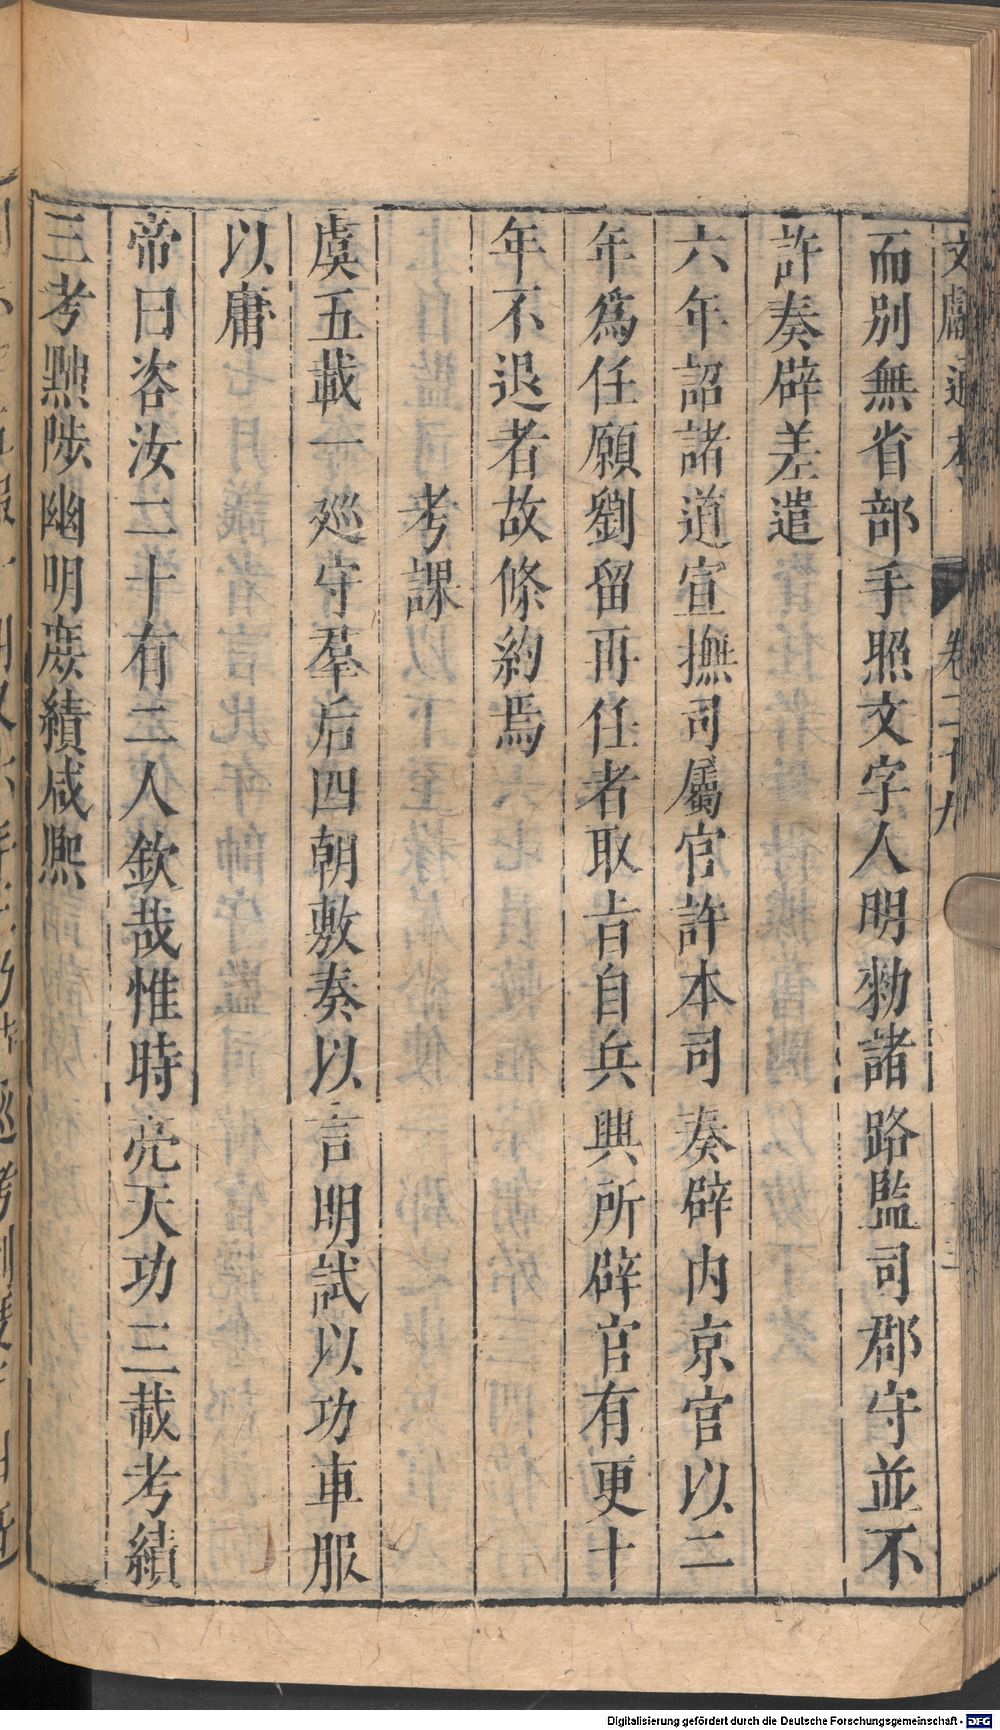 文獻通考 卷三十九
而別無省部手照文字人明勑諸路監司郡守並不
許奏辟差遣
六年詔諸道宣撫司屬官許本司奏辟內京官以二
年為任願劉留再任者取旨自兵興所辟官有更十
年不退者故條約焉
考課
虞五載一巡守羣后四朝敷奏以言明試以功車服
以庸
帝曰咨汝二十有二人欽哉惟時亮天功三載考績
三考黜陟幽明庶績咸熙
Digitalisierung gefördert durch die Deutsche Forschungsgemeinschaft - DFG